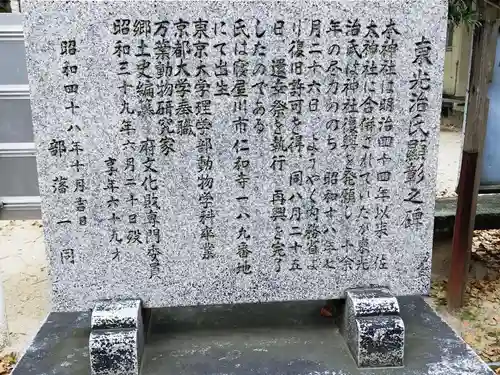 東光治氏顕彰之碑
本神社は明治四十四年以来 住
太神社に合併されていたが東光
治氏は神社復興を発願し 十余
年の尽力ののち 昭和十八年七
月二十六日 ようやく内務省よ
り復旧許可を得 同八月二十五
日 還幸祭を執行 再興を完了
したのである
氏は寝屋川市仁和寺一八九番地
にて出生
東京大学理学部動物学科卒業
京都大学奉職
万葉動物研究家
郷土史編纂 府文化財専門委員
昭和三十九年六月二十日歿
享年六十九才
昭和四十八年十月吉日
部落一同